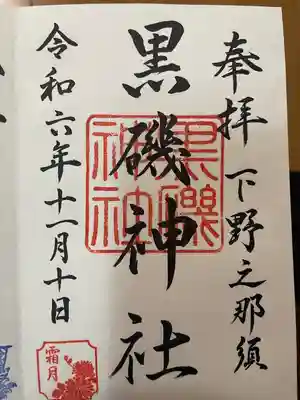 奉拝 下野之那須
黒磯神社
黒磯神社
令和六年十一月十日
霜月